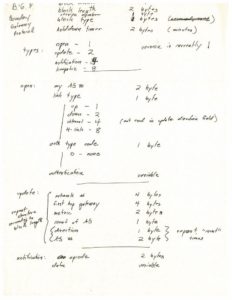 BGP
Boundary
Gateway
Protocol
block length 2 bytes
2 bytes
block type 2 bytes
holddown timer 2 bytes (minutes)
types: open - 1 version is currently 1
update - 2
notification - 4
keepalive - 8
open: my AS # 2 byte
link type 1 byte
up - 1
down - 2
(not read in update direction field)
H-link - 8
auth type code 1 byte
0 - none
authentication variable
update: network # 4 bytes
first hop gateway 4 bytes
metric 2 bytes
count of AS 1 byte
direction 1 byte
AS # 2 byte
repeat count
times
repeat
according to
block length
notification: opcode 2 bytes
data variable